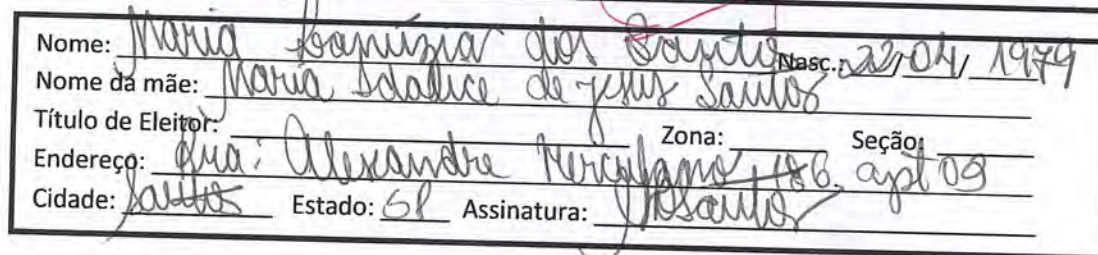 Nome: Maria dos Santos Nasc.: 22/04/1979
Nome da mãe: Maria Idalice de jesus Santos
Título de Eleitor: Zona: Seção:
Endereço: Rua: Alexandre Herculano apt 09
Cidade: Santos Estado: SP Assinatura: